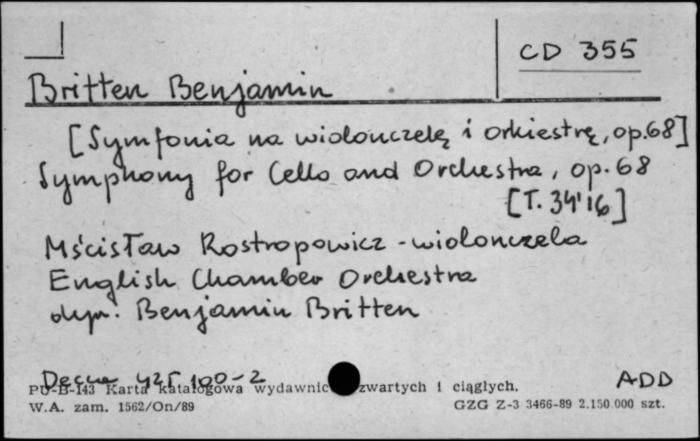 CD 355
Britten Benjamin
[Symfonia na wiolonczelę i orkiestrę, op.68]
Symphony for Cello and Orchestra, op. 68
[T. 34'16]
Mścisław Rostropowicz - wiolonczela
English Chamber Orchestra
dyr. Benjamin Britten
Decca 425 100-2
ADD
PU-B-143 Karta katalogowa wydawnic zwartych i ciągłych.
W.A. zam. 1562/On/89
GZG Z-3 3466-89 2.150.000 szt.